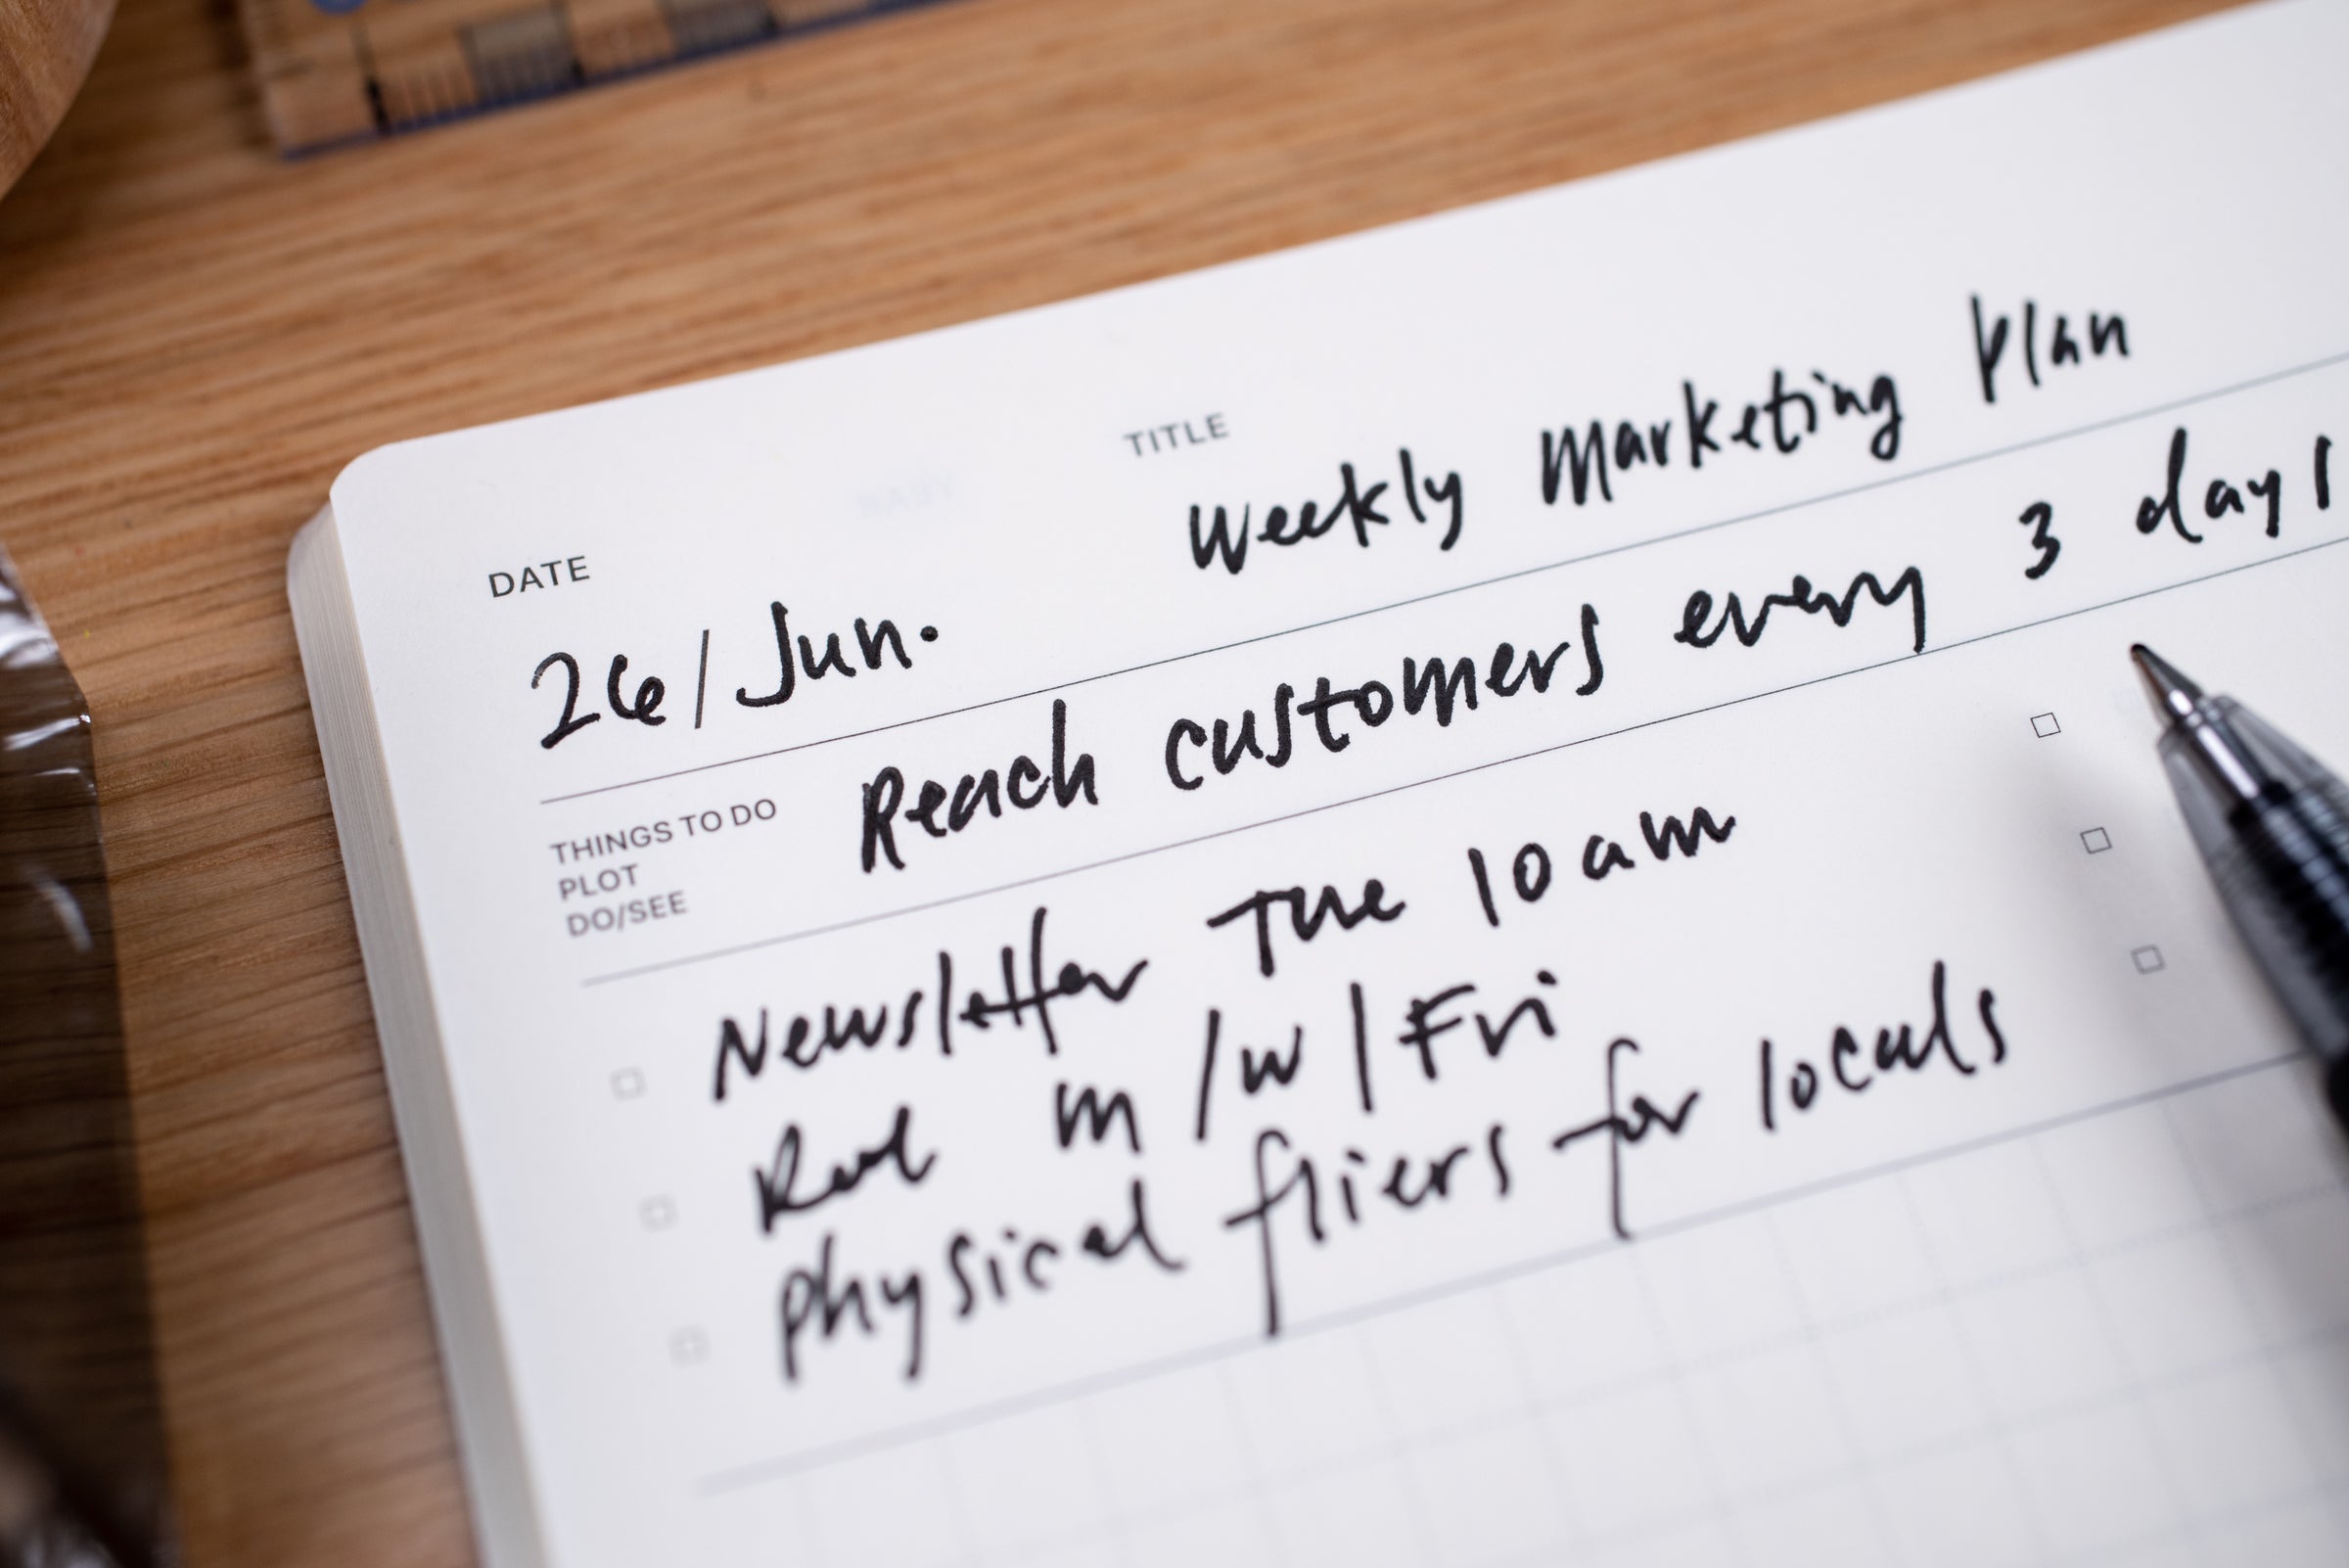 TITLE
Weekly Marketing Plan
DATE
26/Jun.
THINGS TO DO
PLOT
DO/SEE
Reach customers every 3 days
Newsletter Tue 10am
M/W/Fri
Physical fliers for locals